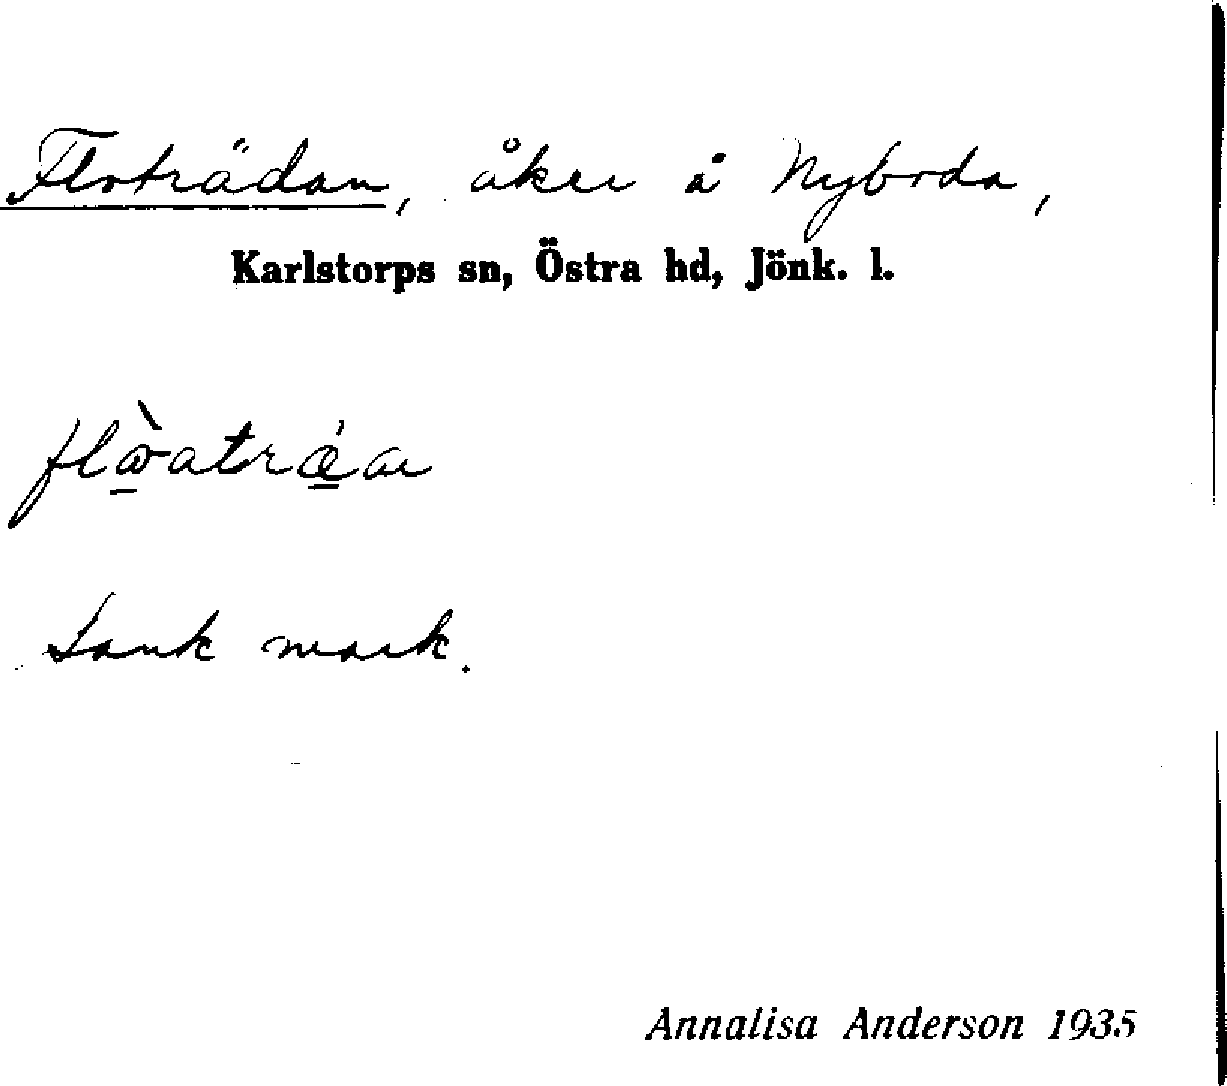 Floträdan, åker å Nyboda,
Karlstorps sn, Östra hd, Jönk. l.
Sank mark.
Annalisa Anderson 1935